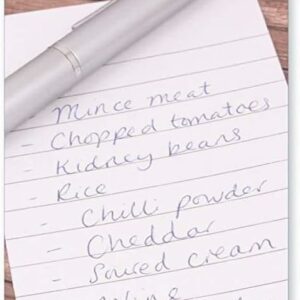 - Mince meat
- Chopped tomatoes
- Kidney beans
- Rice
- Chilli powder
- Cheddar
- Soured cream
Wine